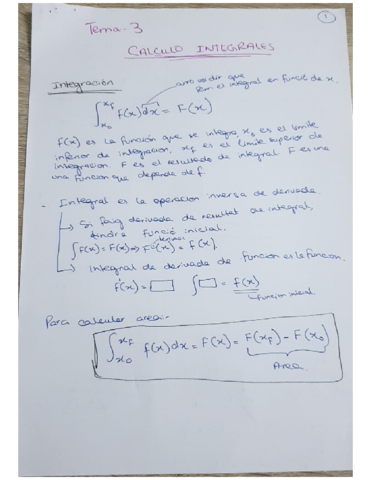 1
Tema-3
CALCULO INTEGRALES
Integración
que
fem el integral en funció de x.
∫_{x_0}^{x_f} f(x)dx = F(x)
f(x) es la función que se integra, x_0 es el límite
inferior de integracion, x_f es el limite superior de
integracion. F es el resultado de integral. F es una
una funcion que depende de f.
- Integral es la operacion inversa de derivada
→ Si faig derivada de resultat de integral,
tindre funció inicial.
∫f(x) = F(x) => F'(x) = f(x).
→ Integral de derivada de funcion es la funcion.
f'(x) = □ ∫□ = f(x)
funcion inicial
Para calcular area:-
∫_{x_0}^{x_f} f(x)dx = F(x) = F(x_f) - F(x_0)
Area